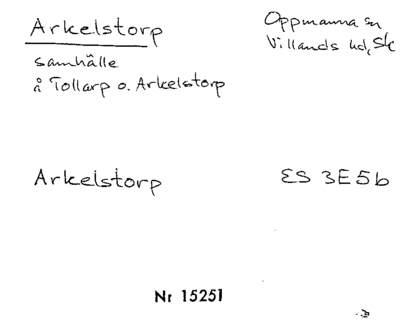 Arkelstorp
Oppmanna sn
Villands hd, Sk
samhälle
å Tollarp o. Arkelstorp
Arkelstorp
ES 3E5b
Nr 15251